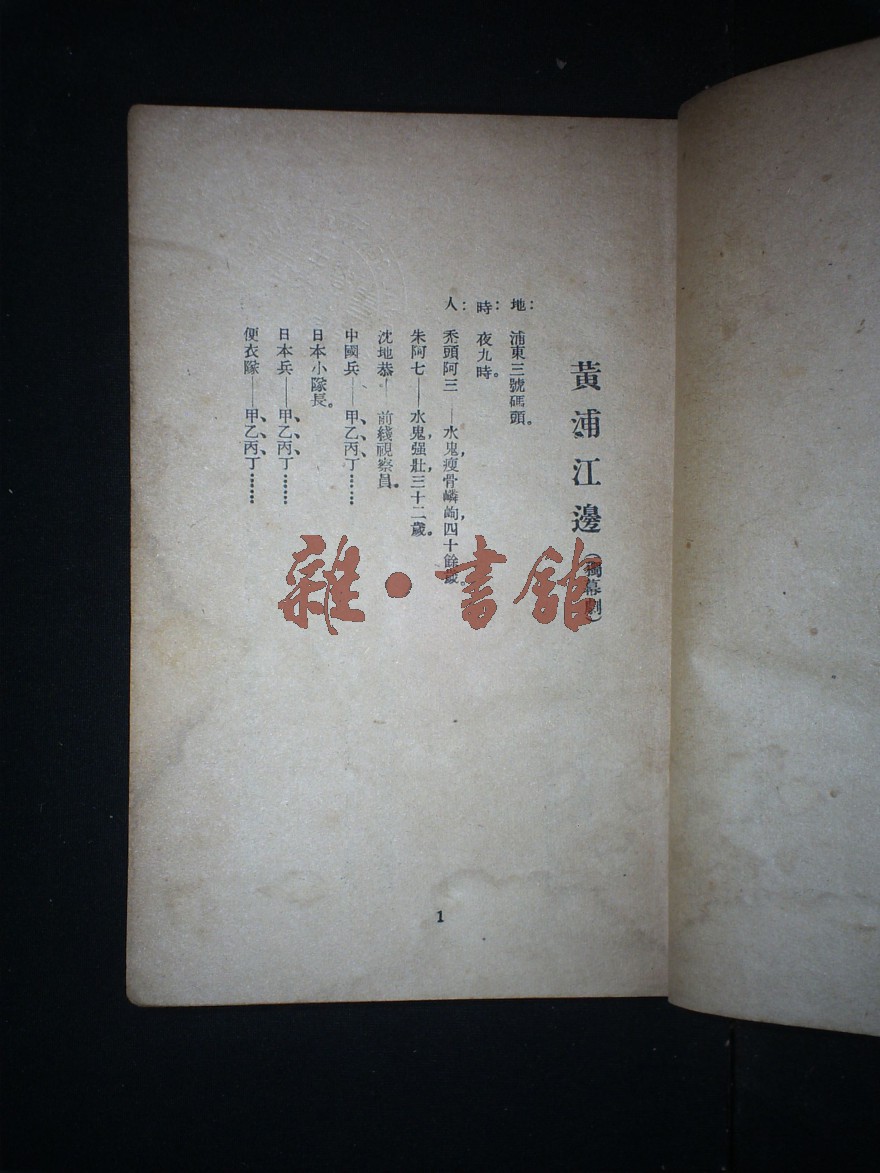 黃浦江邊（獨幕劇）
地：浦東三號碼頭。
時：夜九時。
人：禿頭阿三——水鬼，瘦骨嶙峋，四十餘歲。
朱阿七——水鬼，强壯，三十二歲。
沈地恭—前綫視察員。
中國兵——甲、乙、丙、丁……
日本小隊長。
日本兵——甲、乙、丙、丁……
便衣隊——甲、乙、丙、丁……
雜·書館
1